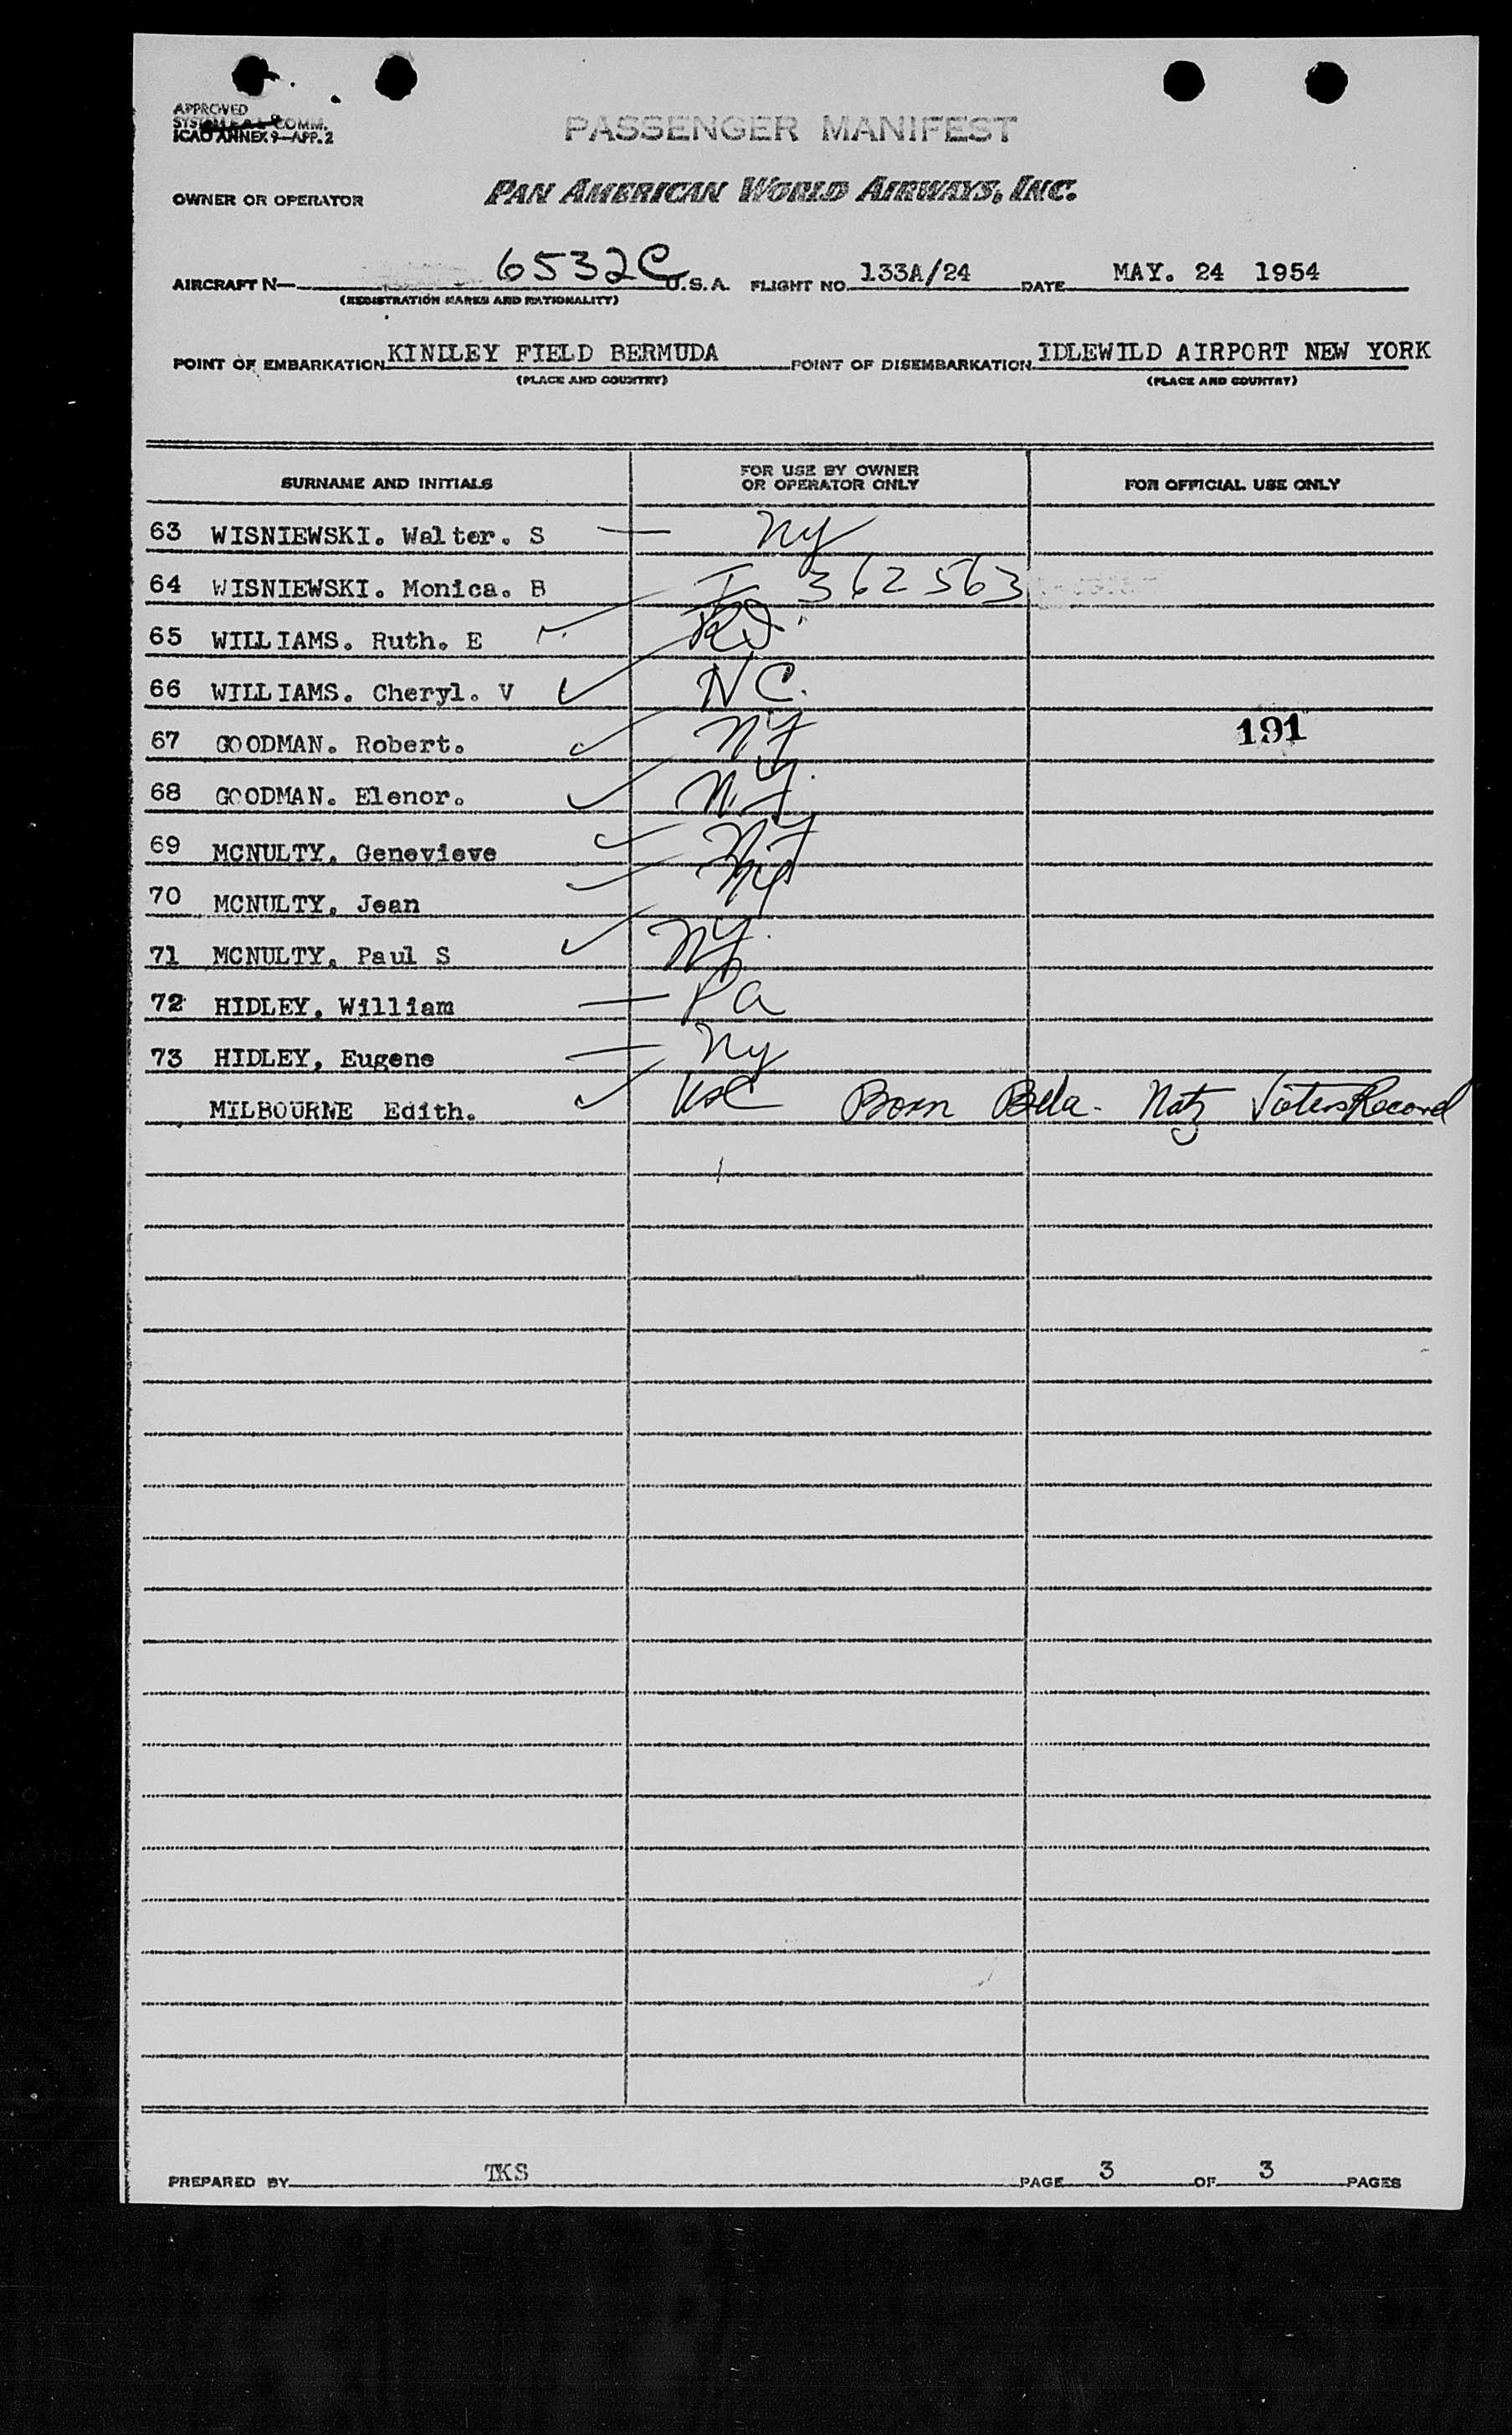 APPROVED
COMM.
ICAO ANNEX 9—APP. 2
PASSENGER MANIFEST
OWNER OR OPERATOR PAN AMERICAN WORLD AIRWAYS, INC.
AIRCRAFT N— 6532C U.S.A. FLIGHT NO. 133A/24 DATE MAY. 24 1954
(REGISTRATION MARKS AND NATIONALITY)
POINT OF EMBARKATION KINDLEY FIELD BERMUDA POINT OF DISEMBARKATION IDLEWILD AIRPORT NEW YORK
(PLACE AND COUNTRY) (PLACE AND COUNTRY)
SURNAME AND INITIALS FOR USE BY OWNER OR OPERATOR ONLY FOR OFFICIAL USE ONLY
63 WISNIEWSKI. Walter. S — Ny
64 WISNIEWSKI. Monica. B I 362563
65 WILLIAMS. Ruth. E ✓
66 WILLIAMS. Cheryl. V ✓ NC.
67 GOODMAN. Robert. ✓ NY 191
68 GOODMAN. Elenor. ✓ N.Y.
69 MCNULTY. Genevieve ✓ NY
70 MCNULTY. Jean ✓ NY
71 MCNULTY. Paul S ✓ NY.
72 HIDLEY, William — Pa
73 HIDLEY, Eugene — Ny
MILBOURNE Edith. ✓ USC Born Bda. Natz Voters Record
PREPARED BY TKS PAGE 3 OF 3 PAGES